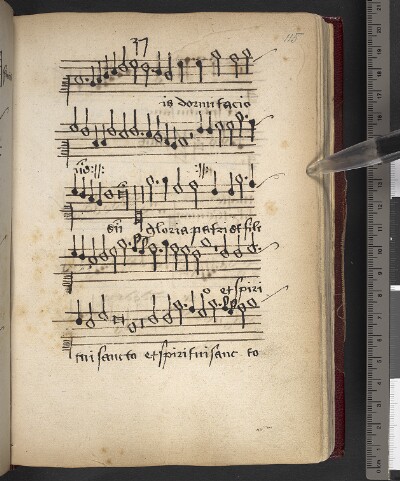 37
115
is dormitacio
gloria patri et fili
et spiri
tui sancto et spiritui sanc to